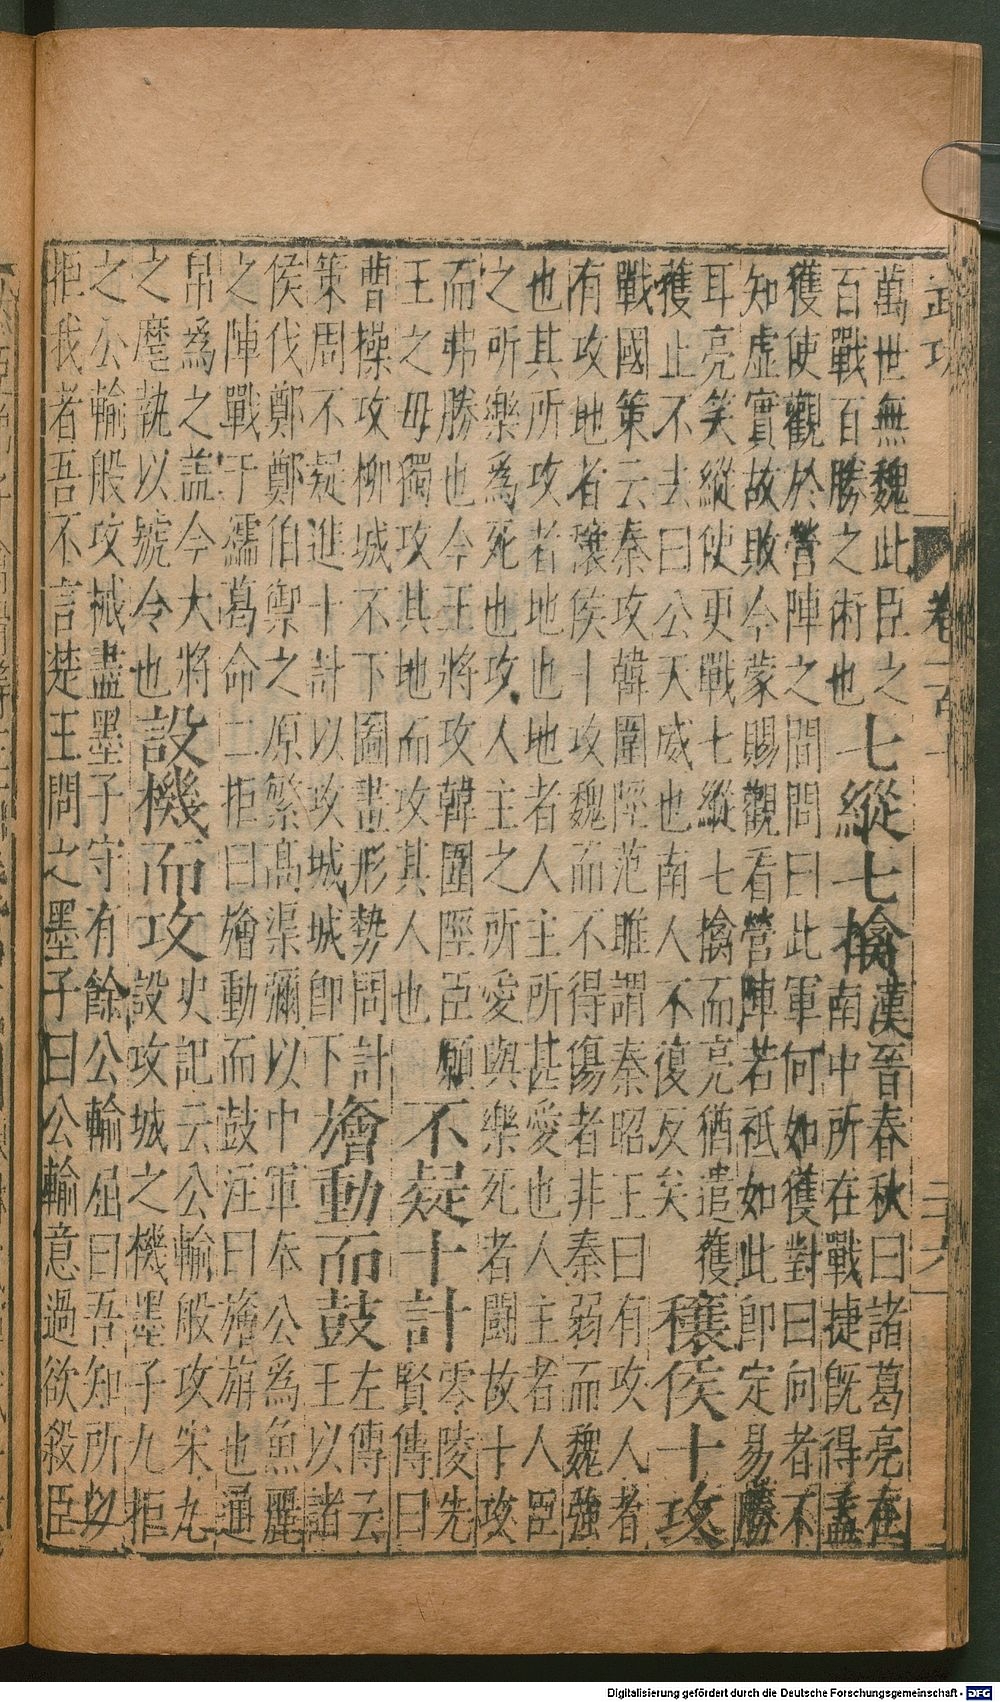 武功 卷一百十 二十六
萬世無魏此臣之
百戰百勝之術也
七縱七擒
漢晉春秋曰諸葛亮在
南中所在戰捷旣得孟
獲使觀於營陣之間問曰此軍何如獲對曰向者不
知虛實故敗今蒙賜觀看營陣若祗如此卽定易勝
耳亮笑縱使更戰七縱七擒而亮猶遣獲
獲止不去曰公天威也南人不復反矣
穰侯十攻
戰國策云秦攻韓圍陘范雎謂秦昭王曰有攻人者
有攻地者穰侯十攻魏而不得傷者非秦弱而魏強
也其所攻者地也地者人主所甚愛也人主者人臣
之所樂爲死也攻人主之所愛與樂死者鬬故十攻
而弗勝也今王將攻韓圍陘臣願
王之毋獨攻其地而攻其人也
不疑十計
零陵先
賢傳曰
曹操攻柳城不下圖畫形勢問計
策周不疑進十計以攻城城卽下
旝動而鼓
左傳云
王以諸
侯伐鄭鄭伯禦之原繁高渠彌以中軍奉公爲魚麗
之陣戰于繻葛命二拒曰旝動而鼓注曰旝旃也通
帛爲之盖今大將
之麾執以號令也
設機而攻
史記云公輸般攻宋九
設攻城之機墨子九拒
之公輸般攻械盡墨子守有餘公輸屈曰吾知所以
拒我者吾不言楚王問之墨子曰公輸意過欲殺臣
Digitalisierung gefördert durch die Deutsche Forschungsgemeinschaft - DFG